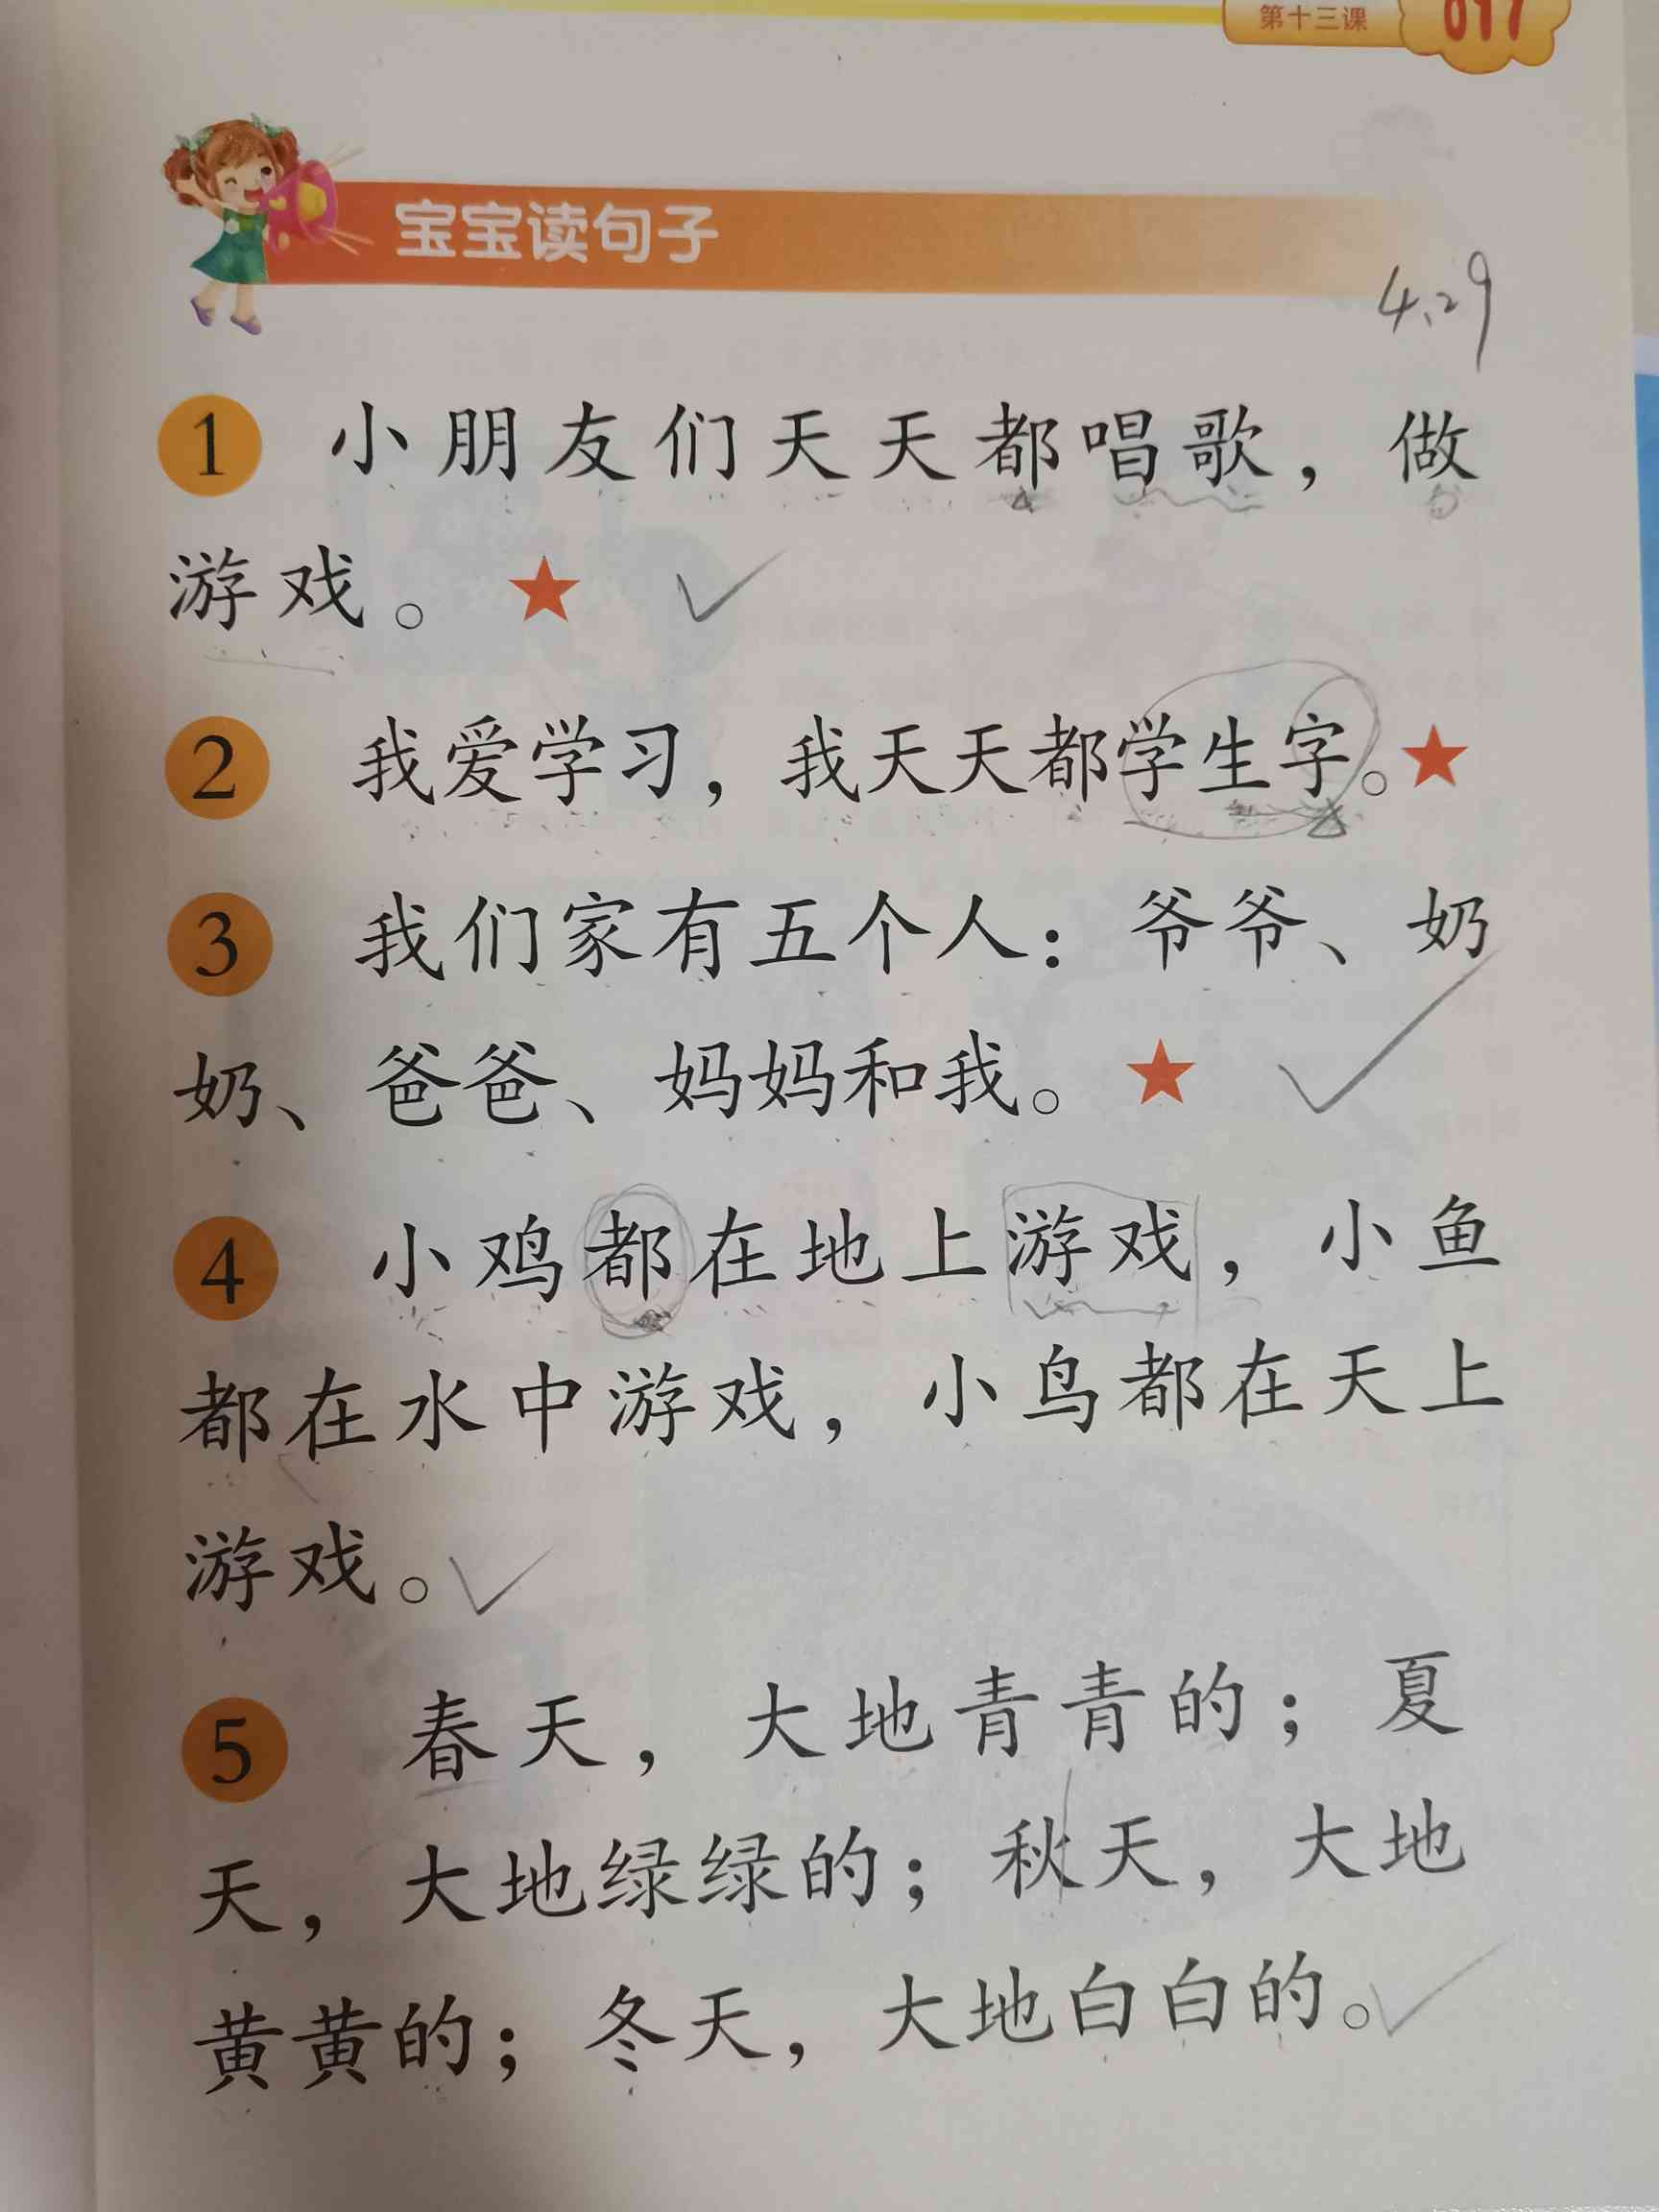 第十三课 017
宝宝读句子
4.29
1 小朋友们天天都唱歌，做
游戏。★ ✓
2 我爱学习，我天天都学生字。★
3 我们家有五个人：爷爷、奶
奶、爸爸、妈妈和我。★ ✓
4 小鸡都在地上游戏，小鱼
都在水中游戏，小鸟都在天上
游戏。✓
5 春天，大地青青的；夏
天，大地绿绿的；秋天，大地
黄黄的；冬天，大地白白的。✓